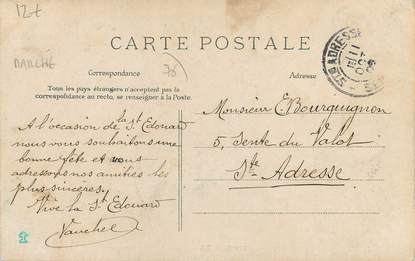 12t
MARCHE
76
CARTE POSTALE
Correspondance
Adresse
Tous les pays étrangers n'acceptent pas la
correspondance au recto, se renseigner à la Poste.
STE ADRESSE
11
OCT
09
A l'occasion de la St Edouard
nous vous souhaitons une
bonne fête et vous
adressons nos amitiés les
plus sincères.
Vive la St Edouard
Vauchel
Monsieur E. Bourguignon
5, Sente du Valot
Ste Adresse